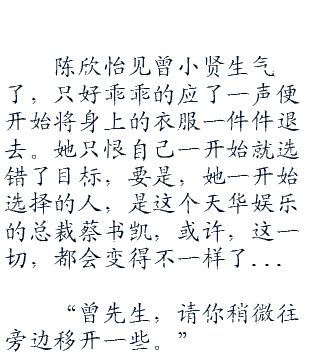 陈欣怡见曾小贤生气
了，只好乖乖的应了一声便
开始将身上的衣服一件件退
去。她只恨自己一开始就选
错了目标，要是，她一开始
选择的人，是这个天华娱乐
的总裁蔡书凯，或许，这一
切，都会变得不一样了...
“曾先生，请你稍微往
旁边移开一些。”